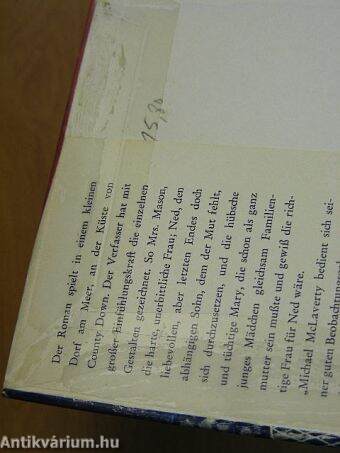 15,80
Der Roman spielt in einem kleinen
Dorf am Meer, an der Küste von
County Down. Der Verfasser hat mit
großer Einfühlungskraft die einzelnen
Gestalten gezeichnet. So Mrs. Mason,
die harte, unerbittliche Frau; Ned, den
liebevollen, aber letzten Endes doch
abhängigen Sohn, dem der Mut fehlt,
sich durchzusetzen, und die hübsche
und tüchtige Mary, die schon als ganz
junges Mädchen gleichsam Familien-
mutter sein mußte und gewiß die rich-
tige Frau für Ned wäre.
„Michael McLaverty bedient sich sei-
ner guten
Antikvárium.hu